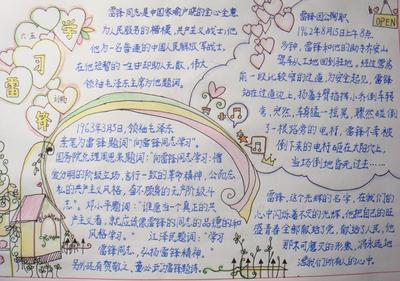 学
习
雷
锋
六五
OPEN
雷锋同志是中国家喻户晓的全心全意
为人民服务的楷模,共产主义战士;他
作为一名普通的中国人民解放军战士,
在他短暂的一生中却助人无数,伟大
领袖毛泽东主席为他题词。
1963年3月5日,领袖毛泽东
亲笔为雷锋题词"向雷锋同志学习"。
国务院总理周恩来题词:"向雷锋同志学习:憎
爱分明的阶级立场,言行一致的革命精神,公而忘
私的共产主义风格,奋不顾身的无产阶级斗
志"。邓小平题词:"谁愿当一个真正的共
产主义者,就应该像雷锋的同志的品德和的
风格学习。"江泽民题词:"学习
雷锋同志,弘扬雷锋精神。"
另外还有贺敬之、董必武为雷锋题诗。
雷锋因公殉职
1962年8月15日上午8点
多钟,雷锋和他的助手乔安山
驾车从工地回到驻地,经过营房
前一段比较窄的过道,为安全起见,雷锋
站在过道边上,扬着手臂指挥小乔倒车转
弯,突然,车身猛一摇晃,骤然碰倒
了一根路旁的电杆,雷锋不幸被
倒下来的电杆砸在太阳穴上,
当场倒地昏死过去……
雷锋,这个光辉的名字,在我们的
心中闪烁着不灭的光辉,他把自己的旺
盛青春全部献给了党,献给了人民,他
那不可磨灭的形象,将永远地
活我们所有人的心中。